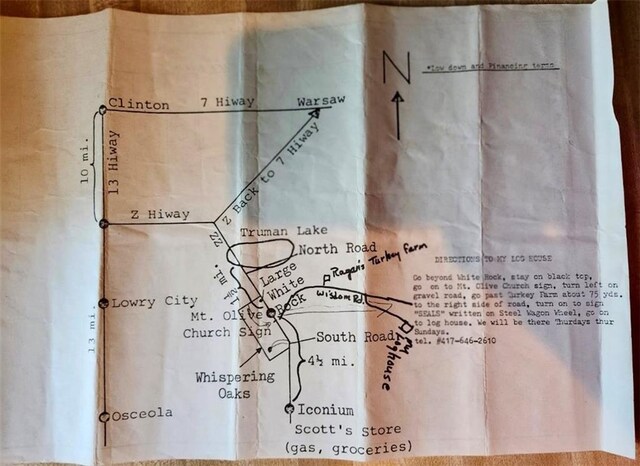 N
*Low down and Financing terms
Clinton 7 Hiway Warsaw
10 mi.
13 Hiway
Z Back to 7 Hiway
Z Hiway
ZZ
mi.
Truman Lake
North Road
Ragan's Turkey Farm
Large
White
Rock
Wisdom Rd
Lowry City
Mt. Olive
Church Sign
13 mi.
South Road
My
Loghouse
4½ mi.
Whispering
Oaks
Osceola
Iconium
Scott's Store
(gas, groceries)
DIRECTIONS TO MY LOG HOUSE
Go beyond White Rock, stay on black top,
go on to Mt. Olive Church sign, turn left on
gravel road, go past Turkey Farm about 75 yds.
to the right side of road, turn on to sign
"SEALS" written on Steel Wagon Wheel, go on
to log house. We will be there Thurdays thur
Sundays.
tel. #417-646-2610